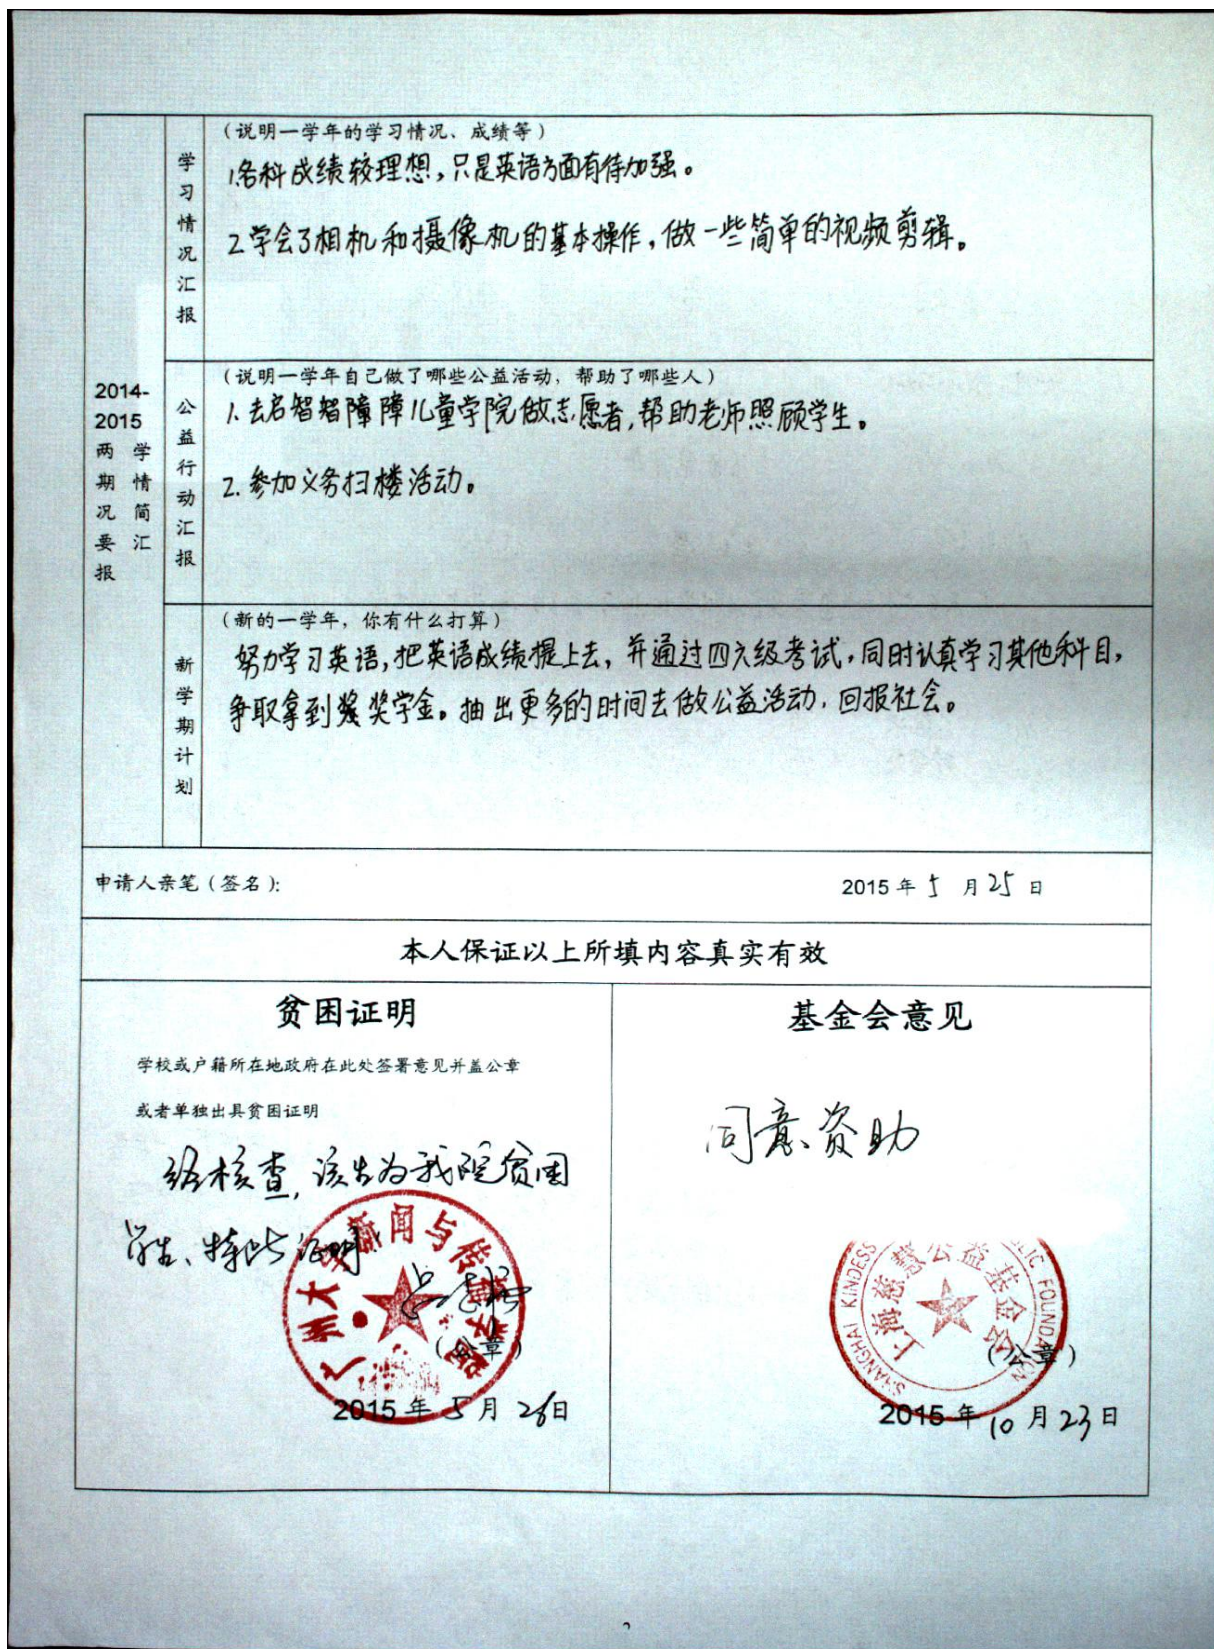 2014-
2015
两 学
期 情
况 简
要 汇
报
学习情况汇报
（说明一学年的学习情况、成绩等）
1.各科成绩较理想，只是英语方面有待加强。
2.学会了相机和摄像机的基本操作，做一些简单的视频剪辑。
公益行动汇报
（说明一学年自己做了哪些公益活动，帮助了哪些人）
1.去启智智障障儿童学院做志愿者，帮助老师照顾学生。
2.参加义务扫楼活动。
新学期计划
（新的一学年，你有什么打算）
努力学习英语，把英语成绩提上去，并通过四六级考试，同时认真学习其他科目，
争取拿到奖奖学金。抽出更多的时间去做公益活动，回报社会。
申请人亲笔（签名）：
2015年5月25日
本人保证以上所填内容真实有效
贫困证明
学校或户籍所在地政府在此处签署意见并盖公章
或者单独出具贫困证明
经核查，该生为我院贫困
学生、特此证明
广州大学新闻与传播学院
（公章）
2015年5月26日
基金会意见
同意资助
上海慈慧公益基金会
SHANGHAI KINDESS PUBLIC FOUNDATION
（公章）
2015年10月23日